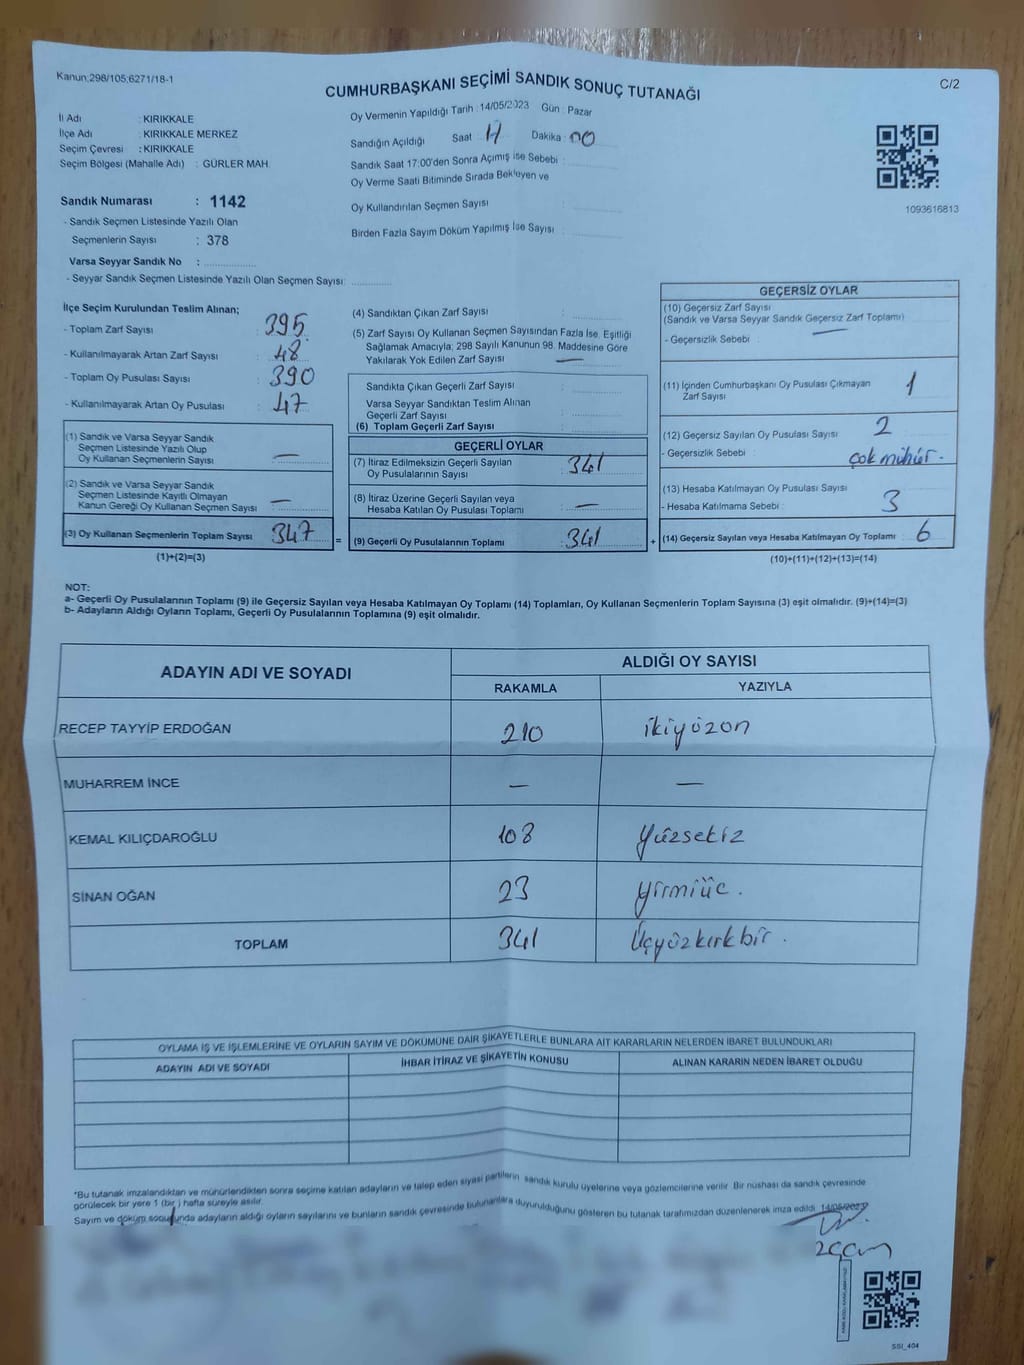 Kanun;298/105;6271/18-1
C/2
CUMHURBAŞKANI SEÇİMİ SANDIK SONUÇ TUTANAĞI
İl Adı : KIRIKKALE
İlçe Adı : KIRIKKALE MERKEZ
Seçim Çevresi : KIRIKKALE
Seçim Bölgesi (Mahalle Adı) : GÜRLER MAH.
Sandık Numarası : 1142
- Sandık Seçmen Listesinde Yazılı Olan
Seçmenlerin Sayısı : 378
Varsa Seyyar Sandık No :
- Seyyar Sandık Seçmen Listesinde Yazılı Olan Seçmen Sayısı:
Oy Vermenin Yapıldığı Tarih :14/05/2023 Gün : Pazar
Sandığın Açıldığı Saat 17 Dakika : 00
Sandık Saat 17:00'den Sonra Açımış ise Sebebi :
Oy Verme Saati Bitiminde Sırada Bekleyen ve
Oy Kullandırılan Seçmen Sayısı :
Birden Fazla Sayım Döküm Yapılmış İse Sayısı :
1093616813
İlçe Seçim Kurulundan Teslim Alınan;
- Toplam Zarf Sayısı : 395
- Kullanılmayarak Artan Zarf Sayısı : 48
- Toplam Oy Pusulası Sayısı : 390
- Kullanılmayarak Artan Oy Pusulası : 47
(1) Sandık ve Varsa Seyyar Sandık
Seçmen Listesinde Yazılı Olup
Oy Kullanan Seçmenlerin Sayısı : —
(2) Sandık ve Varsa Seyyar Sandık
Seçmen Listesinde Kayıtlı Olmayan
Kanun Gereği Oy Kullanan Seçmen Sayısı : —
(3) Oy Kullanan Seçmenlerin Toplam Sayısı : 347 =
(1)+(2)=(3)
(4) Sandıktan Çıkan Zarf Sayısı :
(5) Zarf Sayısı Oy Kullanan Seçmen Sayısından Fazla İse, Eşitliği
Sağlamak Amacıyla; 298 Sayılı Kanunun 98. Maddesine Göre
Yakılarak Yok Edilen Zarf Sayısı : —
Sandıkta Çıkan Geçerli Zarf Sayısı :
Varsa Seyyar Sandıktan Teslim Alınan
Geçerli Zarf Sayısı :
(6) Toplam Geçerli Zarf Sayısı :
GEÇERLİ OYLAR
(7) İtiraz Edilmeksizin Geçerli Sayılan
Oy Pusulalarının Sayısı : 341
(8) İtiraz Üzerine Geçerli Sayılan veya
Hesaba Katılan Oy Pusulası Toplamı : —
(9) Geçerli Oy Pusulalarının Toplamı : 341 +
GEÇERSİZ OYLAR
(10) Geçersiz Zarf Sayısı
(Sandık ve Varsa Seyyar Sandık Geçersiz Zarf Toplamı) —
- Geçersizlik Sebebi :
(11) İçinden Cumhurbaşkanı Oy Pusulası Çıkmayan
Zarf Sayısı 1
(12) Geçersiz Sayılan Oy Pusulası Sayısı 2
- Geçersizlik Sebebi : çok mühür.
(13) Hesaba Katılmayan Oy Pusulası Sayısı
- Hesaba Katılmama Sebebi : 3
(14) Geçersiz Sayılan veya Hesaba Katılmayan Oy Toplamı : 6
(10)+(11)+(12)+(13)=(14)
NOT:
a- Geçerli Oy Pusulalarının Toplamı (9) ile Geçersiz Sayılan veya Hesaba Katılmayan Oy Toplamı (14) Toplamları, Oy Kullanan Seçmenlerin Toplam Sayısına (3) eşit olmalıdır. (9)+(14)=(3)
b- Adayların Aldığı Oyların Toplamı, Geçerli Oy Pusulalarının Toplamına (9) eşit olmalıdır.
ADAYIN ADI VE SOYADI
ALDIĞI OY SAYISI
RAKAMLA YAZIYLA
RECEP TAYYİP ERDOĞAN 210 ikiyüzon
MUHARREM İNCE — —
KEMAL KILIÇDAROĞLU 108 yüzsekiz
SİNAN OĞAN 23 yirmiüç.
TOPLAM 341 Üçyüzkırkbir.
OYLAMA İŞ VE İŞLEMLERİNE VE OYLARIN SAYIM VE DÖKÜMÜNE DAİR ŞİKAYETLERLE BUNLARA AİT KARARLARIN NELERDEN İBARET BULUNDUKLARI
ADAYIN ADI VE SOYADI İHBAR İTİRAZ VE ŞİKAYETİN KONUSU ALINAN KARARIN NEDEN İBARET OLDUĞU
*Bu tutanak imzalandıktan ve mühürlendikten sonra seçime katılan adayların ve talep eden siyasi partilerin sandık kurulu üyelerine veya gözlemcilerine verilir. Bir nüshası da sandık çevresinde
görülecek bir yere 1 (bir ) hafta süreyle asılır.
Sayım ve döküm sonunda adayların aldığı oyların sayılarını ve bunların sandık çevresinde bulunanlara duyurulduğunu gösteren bu tutanak tarafımızdan düzenlenerek imza edildi. 14/05/2023
SSI_404